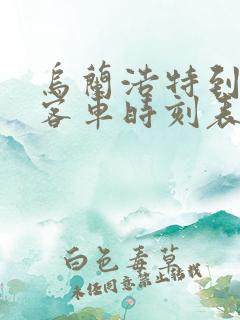 烏蘭浩特到
客車時刻表
白色毒草
未经同意禁止转载